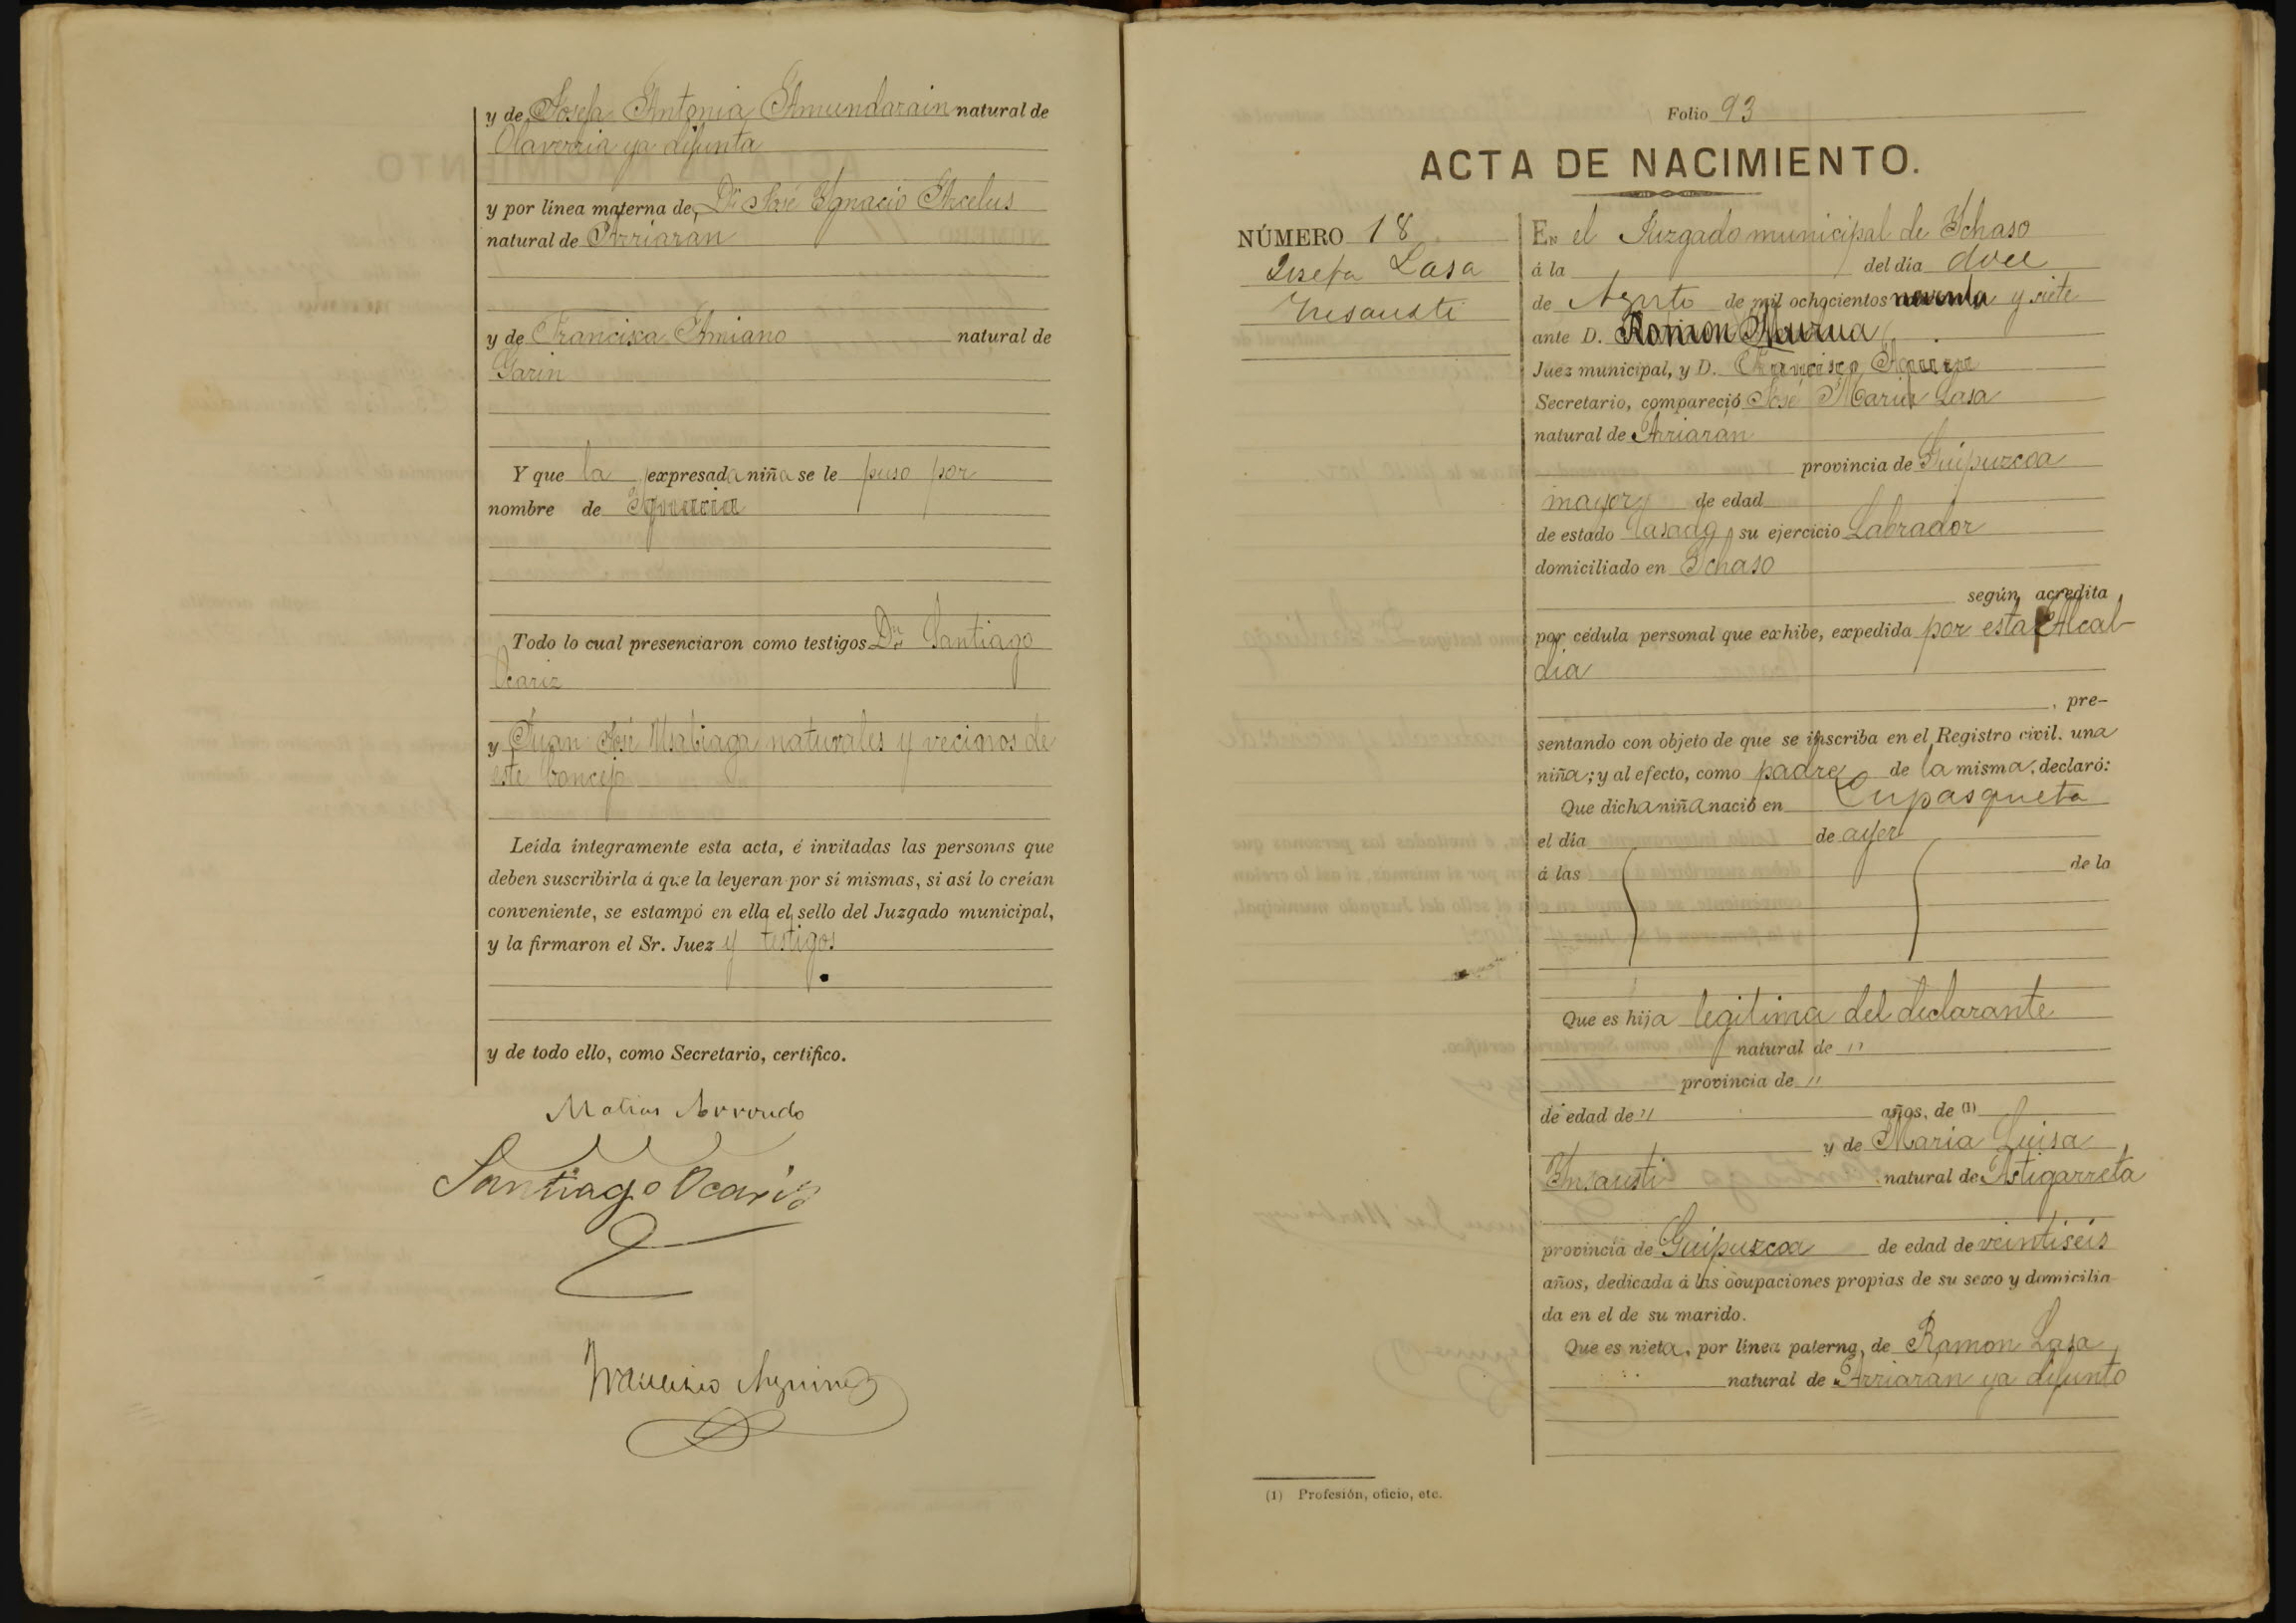 y de Josefa Antonia Amundarain natural de
Olaverria ya difunta
y por línea materna de Dn José Ygnacio Arcelus
natural de Arriaran
y de Francisca Amiano natural de
Garin
Y que la expresada niña se le puso por
nombre de Ygnacia
Todo lo cual presenciaron como testigos Dn Santiago
Ocariz
y Juan José Usabiaga naturales y vecinos de
este Concejo
Leída íntegramente esta acta, é invitadas las personas que
deben suscribirla á que la leyeran por sí mismas, si así lo creían
conveniente, se estampó en ella el sello del Juzgado municipal,
y la firmaron el Sr. Juez y testigos
y de todo ello, como Secretario, certifico.
Matias
Santiago Ocariz
Francisco
Folio 93
ACTA DE NACIMIENTO.
NÚMERO 18
Josefa Lasa
Insausti
En el Juzgado municipal de Ychaso
á la del día doce
de Agosto de mil ochocientos noventa y siete
ante D. Ramon
Juez municipal, y D. Francisco
Secretario, compareció José Maria Lasa
natural de Arriaran
provincia de Guipuzcoa
mayor de edad
de estado Casado, su ejercicio Labrador
domiciliado en Ychaso
según acredita
por cédula personal que exhibe, expedida por esta Alcal-
dia
, pre-
sentando con objeto de que se inscriba en el Registro civil. una
niña; y al efecto, como padre de la misma, declaró:
Que dicha niña nació en Lupasqueta
el día de ayer
á las de la
Que es hija legitima del declarante
natural de "
provincia de "
de edad de " años, de (1)
y de Maria Luisa
Ynsausti natural de Astigarreta
provincia de Guipuzcoa de edad de veintiseis
años, dedicada á las ocupaciones propias de su sexo y domicilia-
da en el de su marido.
Que es nieta, por línea paterna, de Ramon Lasa
natural de Arriaran ya difunto
(1) Profesión, oficio, etc.